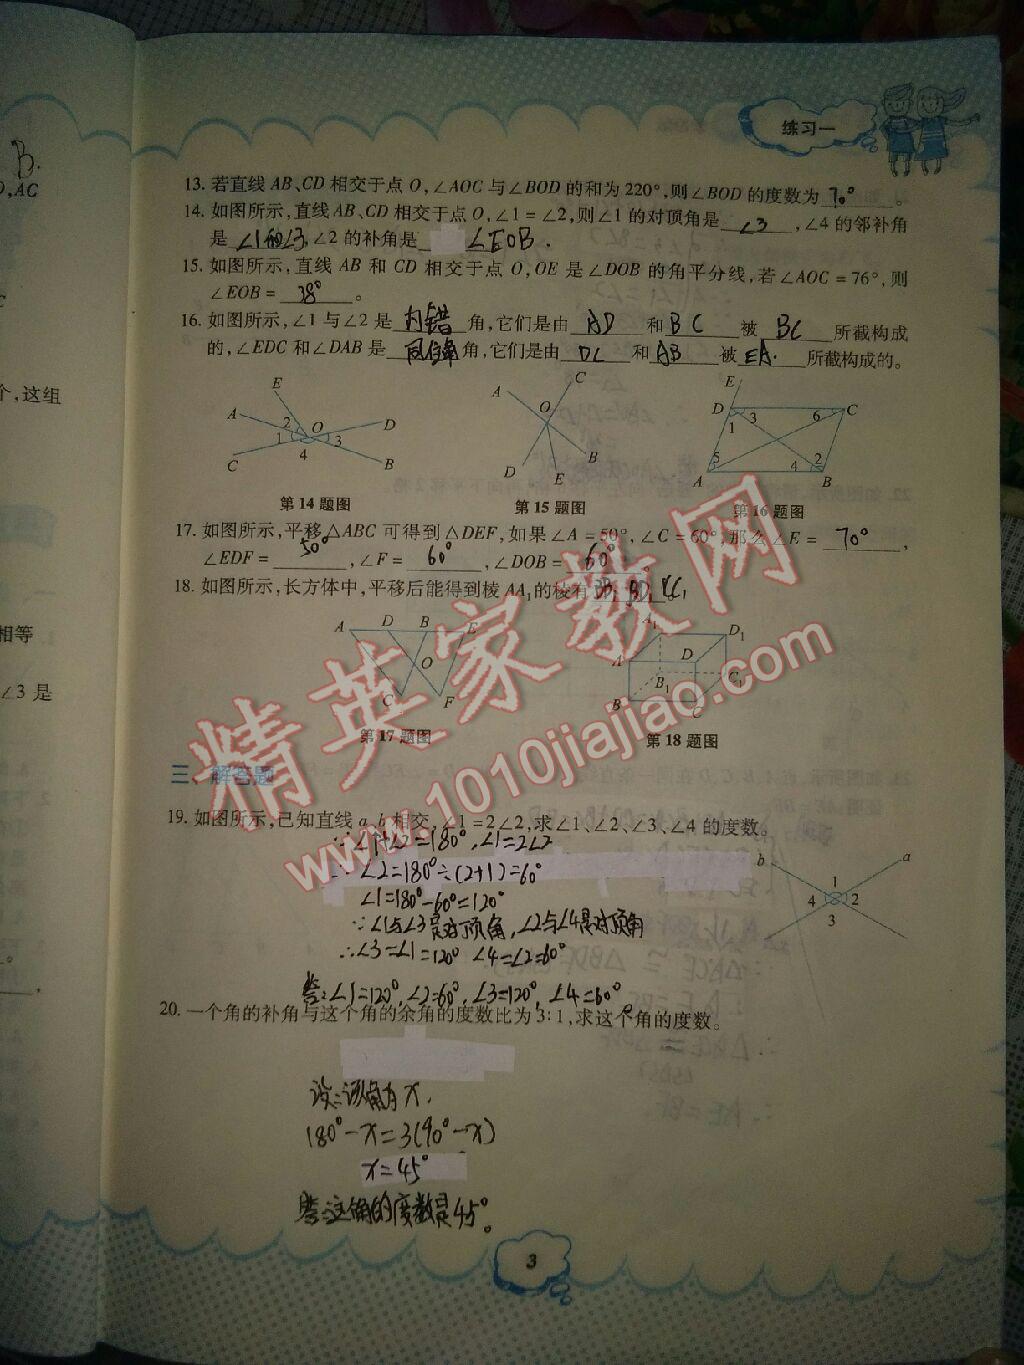 B.
,AC
练习一
13. 若直线AB、CD相交于点O,∠AOC与∠BOD的和为220°,则∠BOD的度数为 70° 。
14. 如图所示,直线AB、CD相交于点O,∠1=∠2,则∠1的对顶角是 ∠3 ,∠4的邻补角
是 ∠1和∠3,∠2的补角是 ∠EOB .
15. 如图所示,直线AB和CD相交于点O,OE是∠DOB的角平分线,若∠AOC=76°,则
∠EOB= 38° 。
16. 如图所示,∠1与∠2是 内错 角,它们是由 AD 和 BC 被 BC 所截构成
的,∠EDC和∠DAB是 同位角 角,它们是由 DC 和 AB 被 EA. 所截构成的。
个,这组
E
A
2
O
D
1
3
4
C
B
第14题图
C
A
O
B
D
E
第15题图
E
D
3
6
C
1
5
4
2
A
B
第16题图
17. 如图所示,平移△ABC可得到△DEF,如果∠A=50°,∠C=60°,那么∠E= 70° ,
∠EDF= 50° ,∠F= 60° ,∠DOB= 60° 。
18. 如图所示,长方体中,平移后能得到棱AA₁的棱有
相等
∠3是
A D B E
O
C F
第17题图
A₁ D₁
A D
B₁ C₁
B C
第18题图
三、解答题
19. 如图所示,已知直线a、b相交,∠1=2∠2,求∠1、∠2、∠3、∠4的度数。
∵∠1+∠2=180°,∠1=2∠2
∴∠2=180°÷(2+1)=60°
∠1=180°-60°=120°
∵∠1与∠3是对顶角,∠2与∠4是对顶角
∴∠3=∠1=120° ∠4=∠2=60°
答:∠1=120°,∠2=60°,∠3=120°,∠4=60°。
b a
1
4 2
3
20. 一个角的补角与这个角的余角的度数比为3:1,求这个角的度数。
设:该角为x.
180°-x=3(90°-x)
x=45°
答:这角的度数是45°。
3
精英家教网
www.1010jiajiao.com